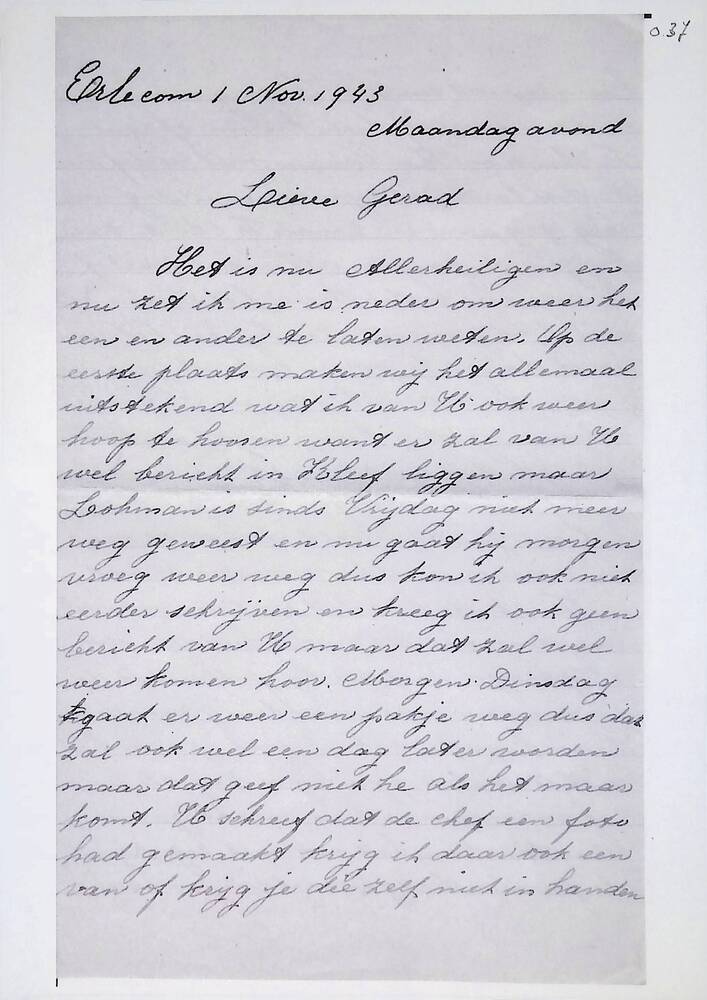 0.37
Erlecom 1 Nov. 1943
Maandag avond
Lieve Gerad
Het is nu Allerheiligen en
nu zet ik me is neder om weer het
een en ander te laten weten. Op de
eerste plaats maken wij het allemaal
uitstekend wat ik van U ook weer
hoop te hooren want er zal van U
wel bericht in Kleef liggen maar
Lohman is sinds Vrijdag niet meer
weg geweest en nu gaat hij morgen
vroeg weer weg dus kon ik ook niet
eerder schrijven en kreeg ik ook geen
bericht van U maar dat zal wel
weer komen hoor. Morgen Dinsdag
gaat er weer een pakje weg dus dat
zal ook wel een dag later worden
maar dat geef niet he als het maar
komt. U schreef dat de chef een foto
had gemaakt krijg ik daar ook een
van of krijg je die zelf niet in handen